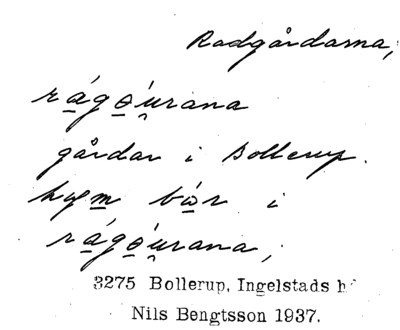 Radgårdarna,
rágǿu̯rana
gårdar i Bollerup.
hɐm bór i
rágǿu̯rana,
3275 Bollerup, Ingelstads h
Nils Bengtsson 1937.